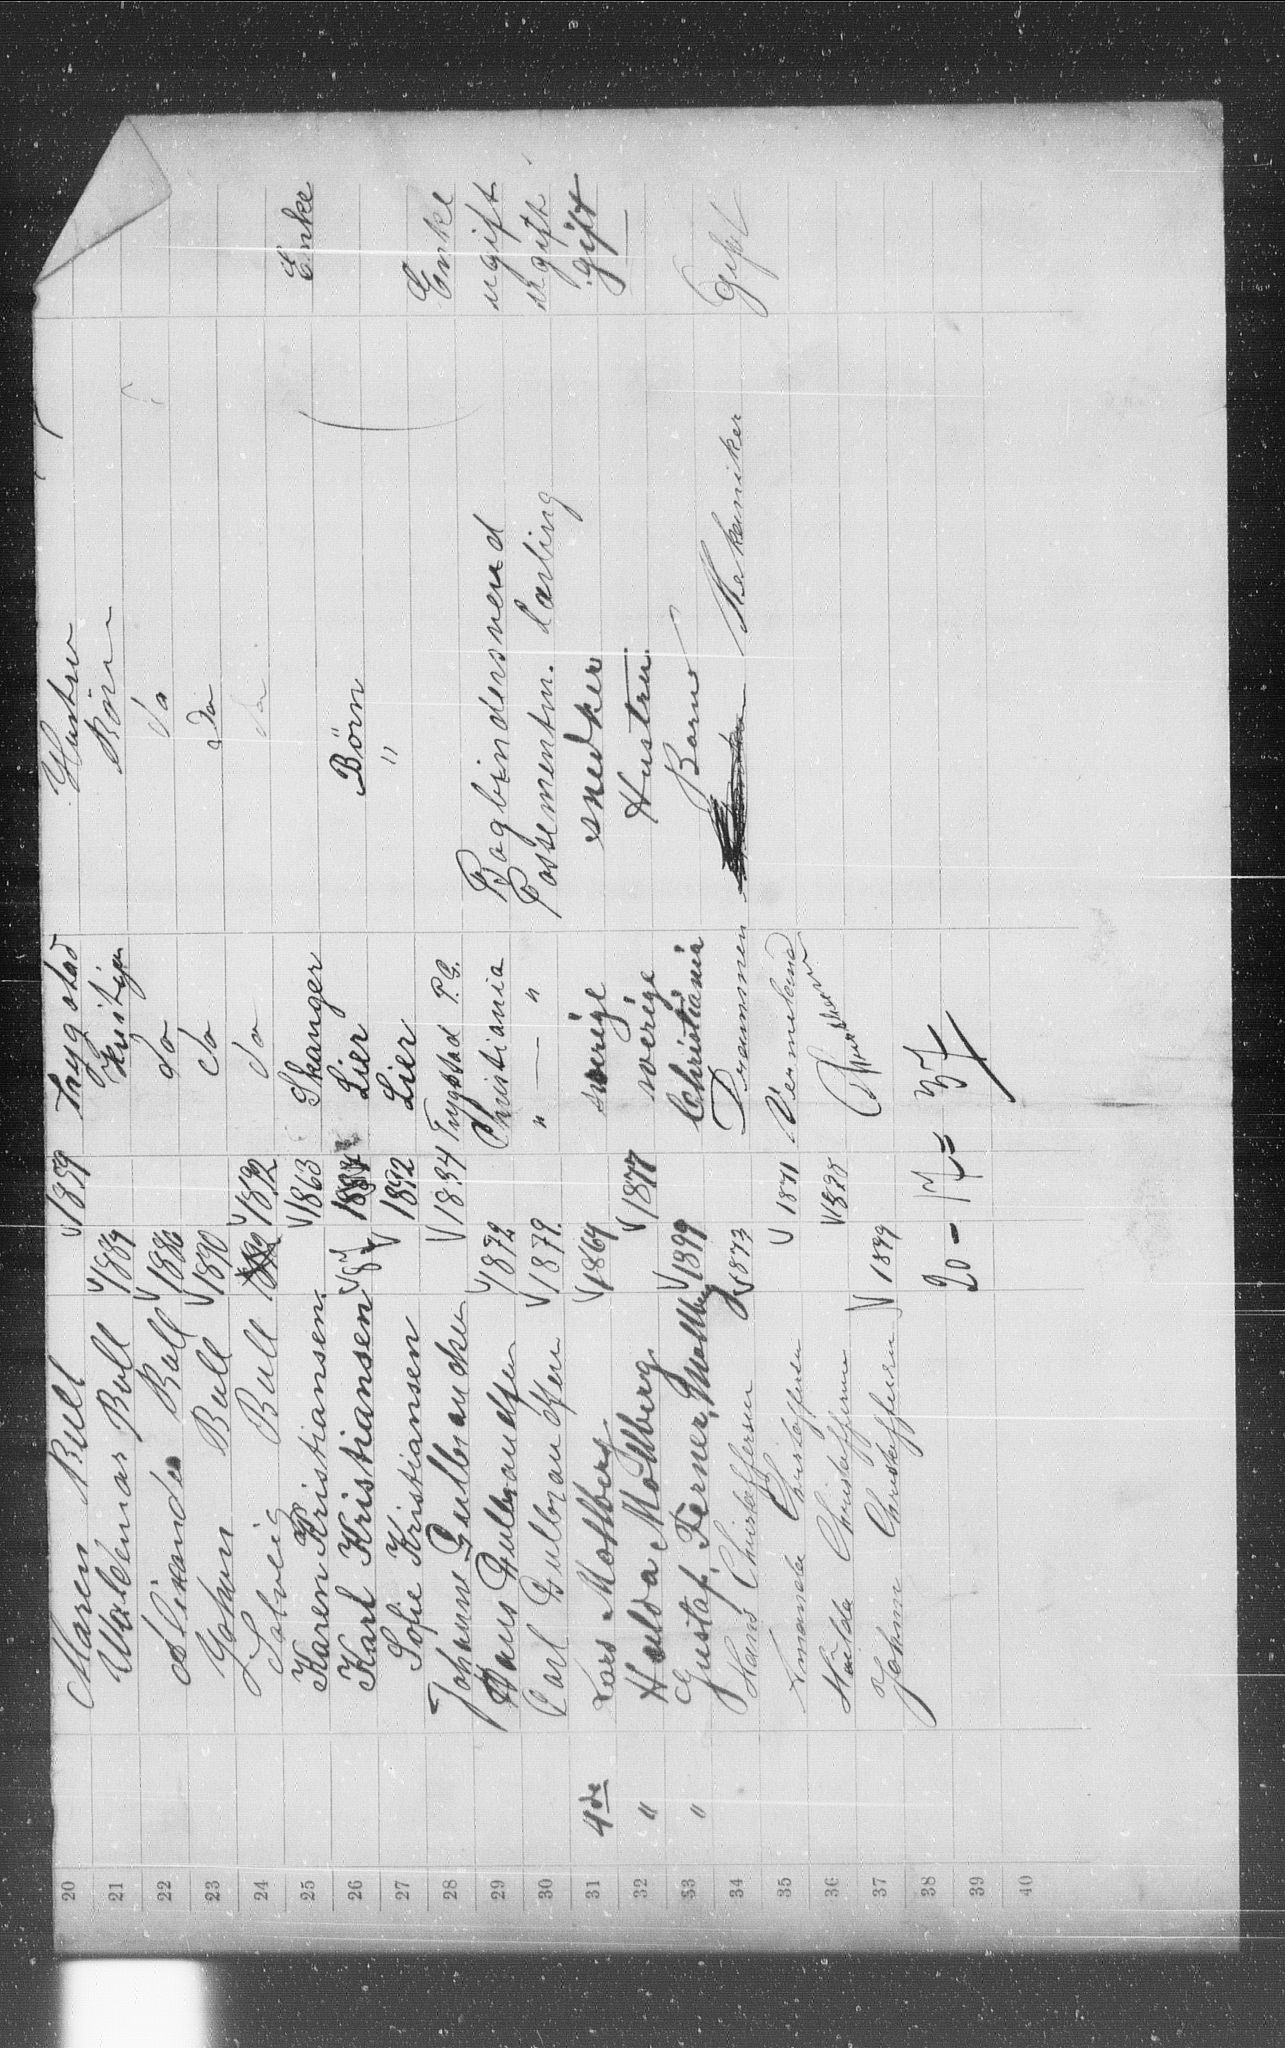 20 Maren Bull 1859 Trygstad Hustru
21 Waldemar Bull 1884 Kristiania Børn
22 Bull 1886 do do
23 Johan Bull 1890 do do
24 Solveig Bull 1892 do do
25 Karen Kristiansen 1863 Skanger Enke
26 Karl Kristiansen 87 Lier Børn
27 Sofie Kristiansen 1892 Lier "
28 Johanne Gulbrandsen 1834 Trygstad P.G. Enke
29 Hans Gulbrandsen 1872 Christiania Bogbindersvend ugift
30 Carl Gulbrandsen 1879 " — " Possementm. Lærling ugift
31 4de Lars Mothberg 1864 sverige snedker gift
32 " Hulda Mothberg 1877 sverige Hustru
33 " Gustaf Ferner Mothberg 1899 Christiania Barn
34 Hans Christoffersen 1873 Drammen Mekaniker Gift
35 Amanda Christoffersen 1871 Vermeland
36 Christoffersen
37 Johan Christoffersen 1899
38 20 - 17 = 37
39
40